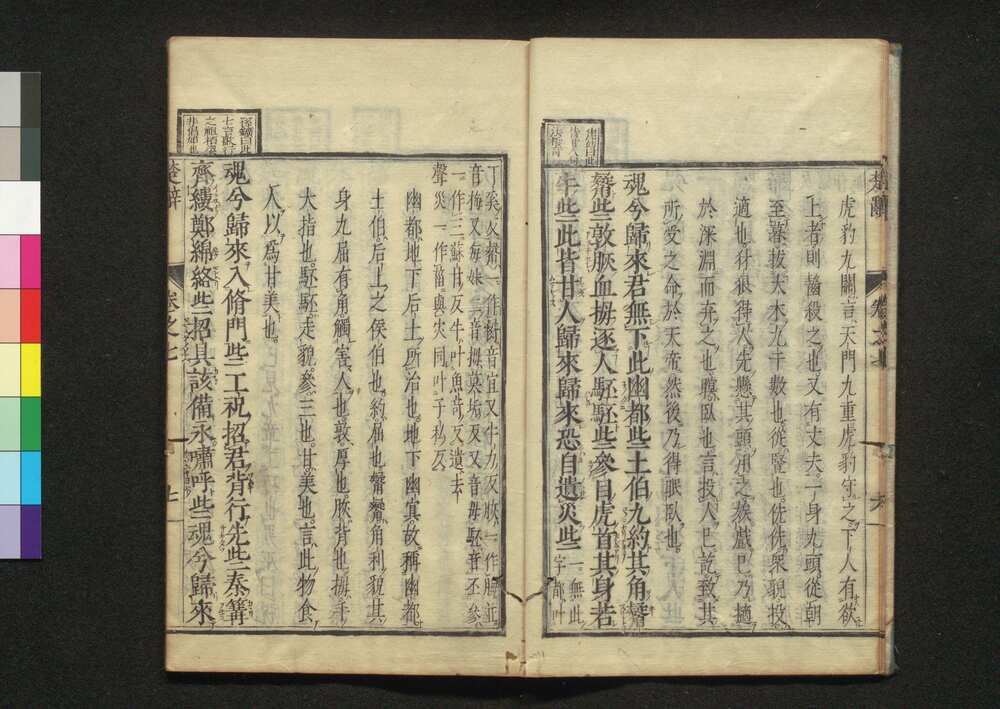 楚辭
卷之七
六
虎豹九關言天門九重虎豹守之下人有欲
上者則齧殺之也又有丈夫一身九頭從朝
至暮拔大木九千數也從豎也侁侁衆貌投
適也豺狼得人先懸其頭用之娭戲已乃擿
於深淵而弃之也瞑臥也言投人已訖致其
所受之命於天帝然後乃得眠臥也
魂兮歸來君無下此幽都些土伯九約其角觺
觺些敦脄血拇逐人駓駓些參目虎首其身若
牛些此皆甘人歸來歸來恐自遺災些
一無此字都叶
丁奚反觺一作
音宜又牛力反脄一作脢並
音梅又每妹二音拇莫垢反又音母駓音丕參
一作三蘇甘反牛叶魚奇反遺去
聲災一作菑與災同叶子私反
幽都地下后土所治也地下幽冥故稱幽都
土伯后土之侯伯也約屈也觺觺角利貌其
身九屈有角觸害人也敦厚也脄背也拇手
大指也駓駓走貌參三也甘美也言此物食
人以爲甘美也
魂兮歸來入脩門些工祝招君背行先些秦篝
齊縷鄭綿絡些招具該備永嘯呼些魂兮歸來
楚辭
卷之七
七